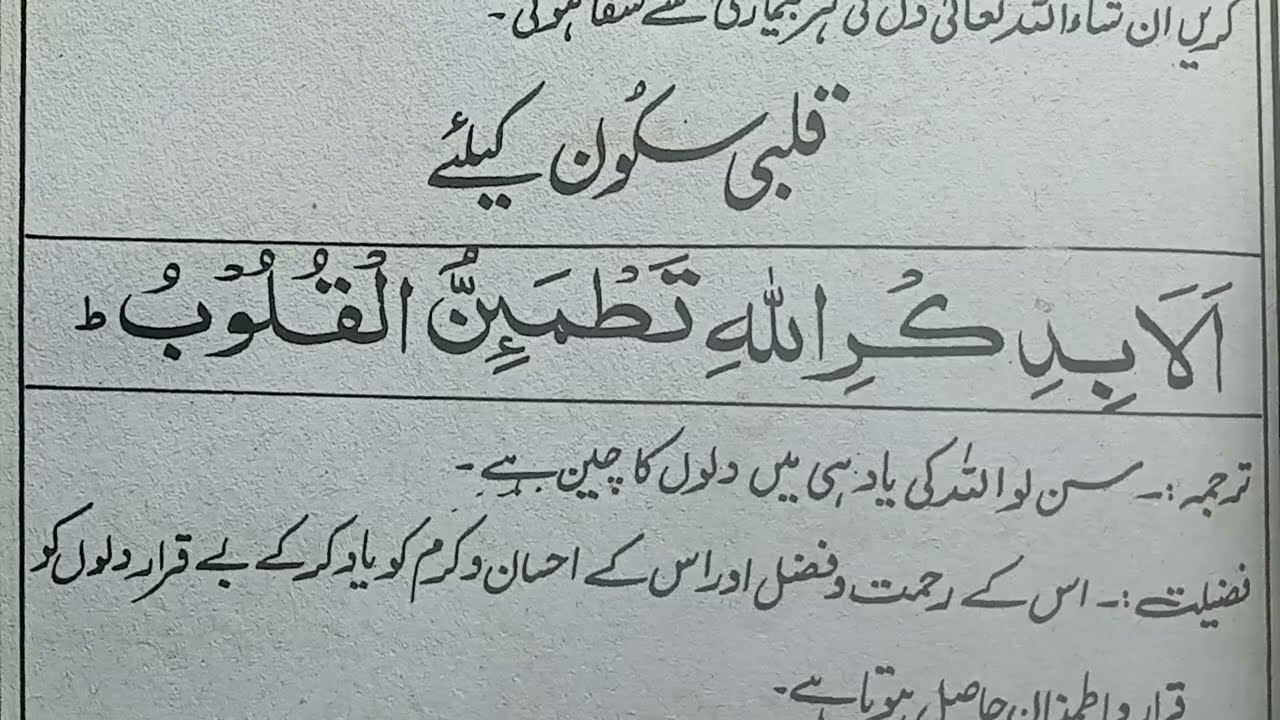 کریں ان شاء اللہ تعالیٰ دل کی ہر بیماری سے شفا ہوگی۔
قلبی سکُون کیلئے
اَلَا بِذِكْرِ اللّٰهِ تَطْمَئِنُّ الْقُلُوْبُ ط
ترجمہ :۔ سن لو اللہ کی یاد ہی میں دلوں کا چین ہے۔
فضیلت :۔ اس کے رحمت و فضل اور اس کے احسان و کرم کو یاد کر کے بے قرار دلوں کو
قرار و اطمینان حاصل ہوتا ہے۔